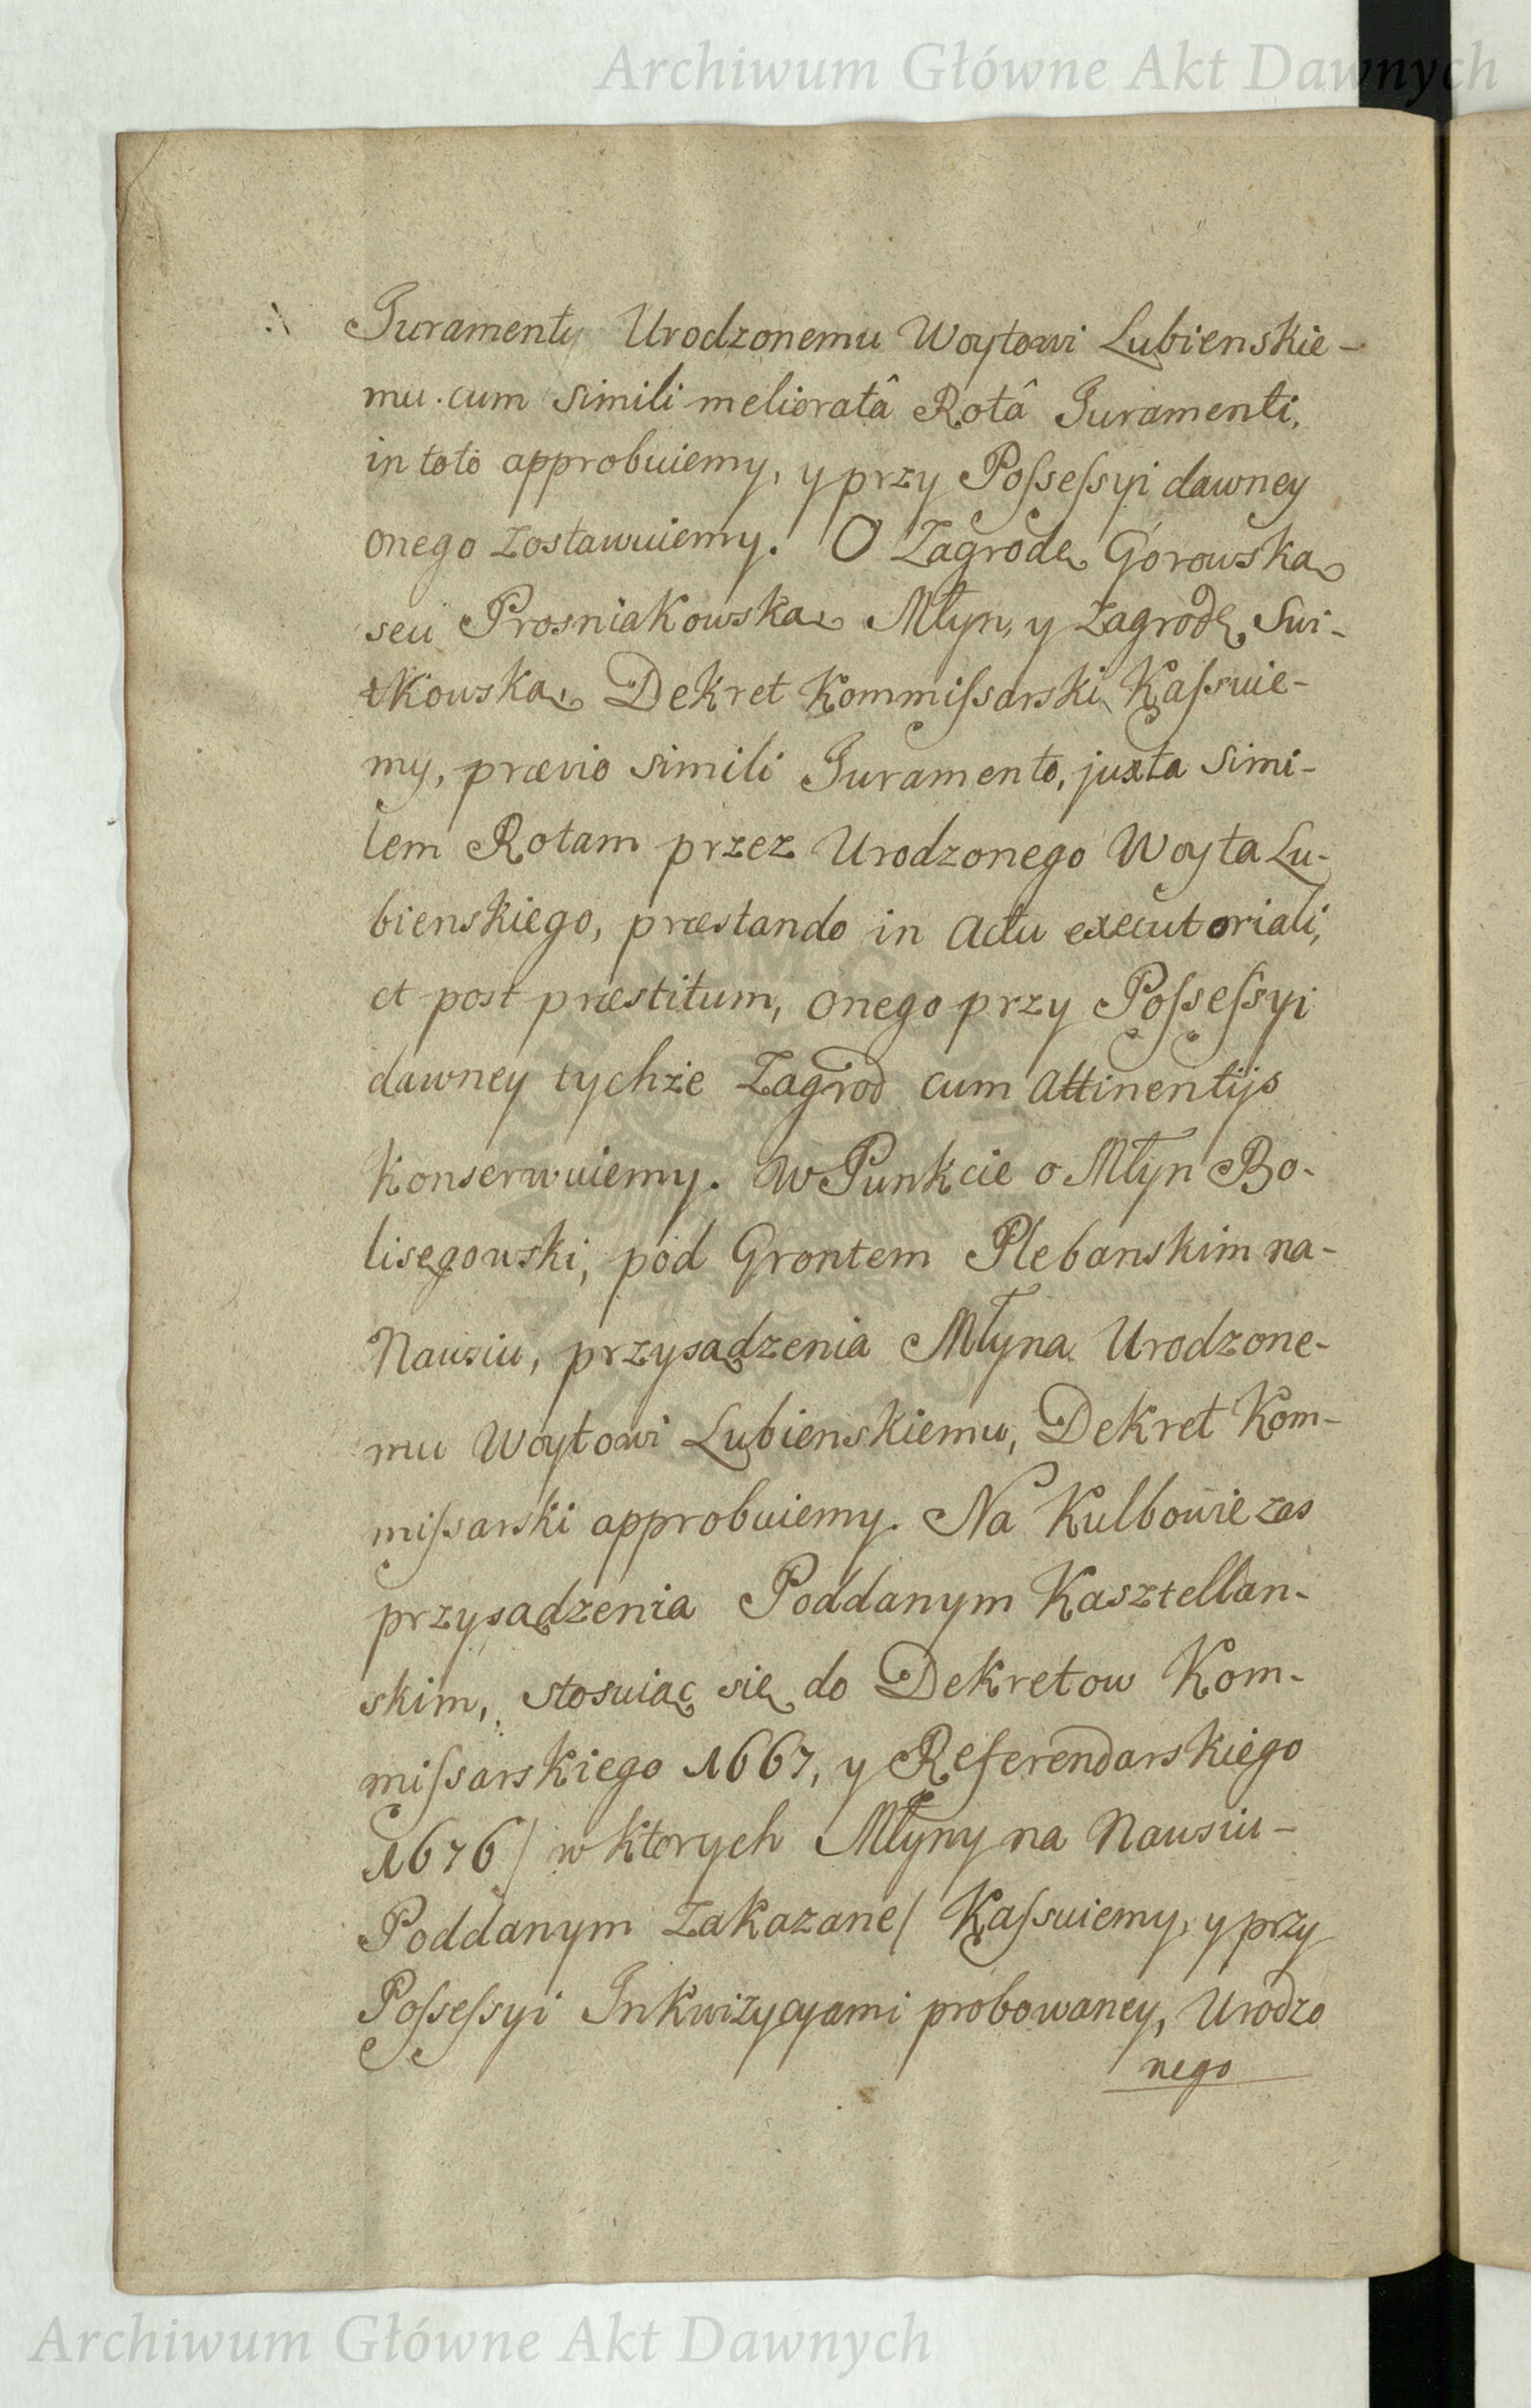 Archiwum Główne Akt Dawnych
Juramenty Urodzonemu Woytowi Lubienskie-
mu. cum simili melioratâ Rotâ Juramenti,
in toto approbuiemy, y przy Poſseſsyi dawney
onego zostawuiemy. O Zagrodę Gorowską
seu Prosniakowską Młyn, y Zagrodę Swi-
tkowską Dekret Kommiſsarski Kaſsuie-
my, prævio simili Juramento, juxta simi-
lem Rotam przez Urodzonego Woyta Lu-
bienskiego, præstando in Actu executoriali,
et post præstitum, onego przy Poſseſsyi
dawney tychże Zagrod cum Attinentijs
konserwuiemy. W Punkcie o Młyn Bo-
lisęgowski, pod Grontem Plebanskim na-
Nawsiu, przysądzenia Młyna Urodzone-
mu Woytowi Lubienskiemu, Dekret Kom-
miſsarski approbuiemy. Na Kulbowie zas
przysądzenia Poddanym Kasztellan-
skim, stosuiąc się do Dekretow Kom-
miſsarskiego 1667, y Referendarskiego
1676/ w ktorych Młyny na Nawsiu-
Poddanym Zakazane/ Kaſsuiemy, y przy
Poſseſsyi Inkwizycyami probowaney, Urodzo
nego
Archiwum Główne Akt Dawnych